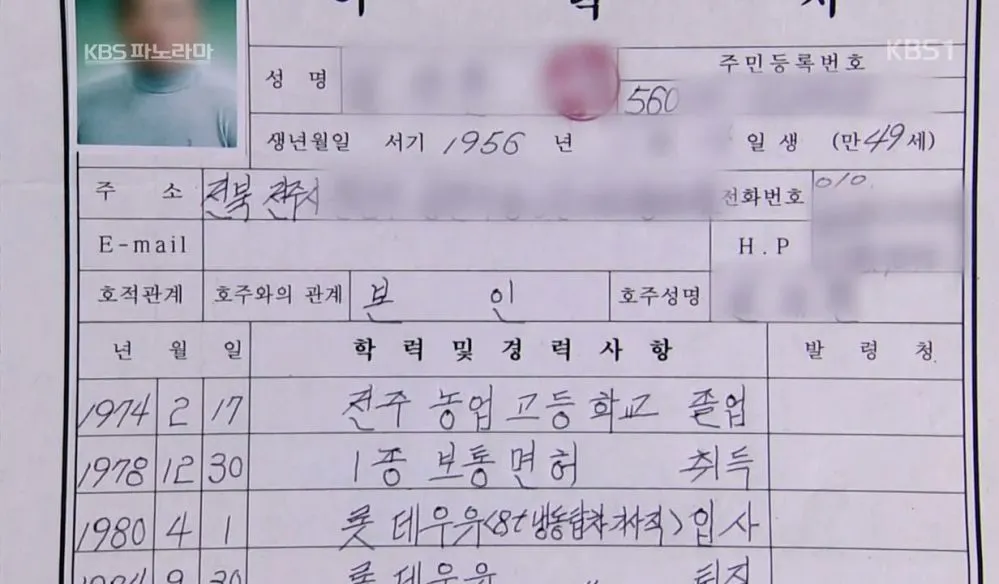 이 력 서
KBS 파노라마
KBS1
성 명
주민등록번호
560
생년월일 서기 1956 년 일 생 (만 49세)
주 소 전북 전주시
전화번호 010
E-mail
H.P
호적관계 호주와의 관계 본 인 호주성명
년 월 일 학 력 및 경 력 사 항 발 령 청
1974 2 17 전주 농업 고등 학교 졸업
1978 12 30 1종 보통면허 취득
1980 4 1 롯데우유(8t 냉동탑차 기사직) 입사
롯데우유 〃 퇴직